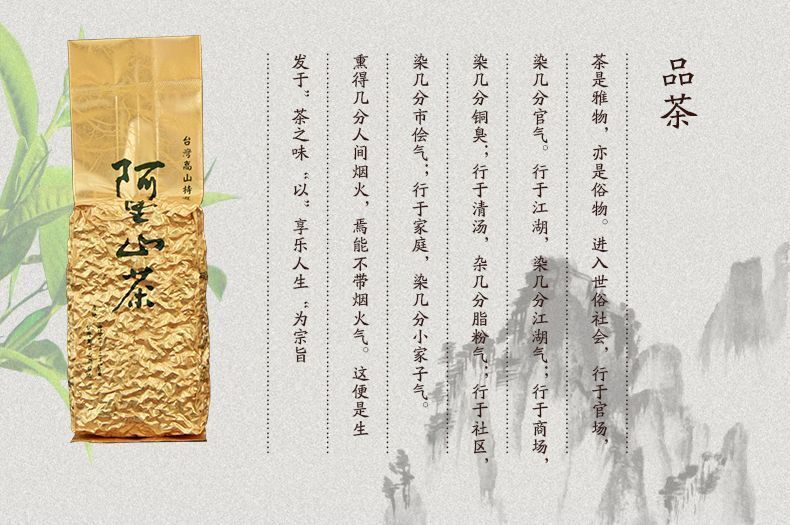 品茶
茶是雅物，亦是俗物。进入世俗社会，行于官场，
染几分官气。行于江湖，染几分江湖气；行于商场，
染几分铜臭；行于清汤，杂几分脂粉气；行于社区，
染几分市侩气；行于家庭，染几分小家子气。
熏得几分人间烟火，焉能不带烟火气。这便是生
发于”茶之味“以”享乐人生“为宗旨
台灣高山特
阿里山茶